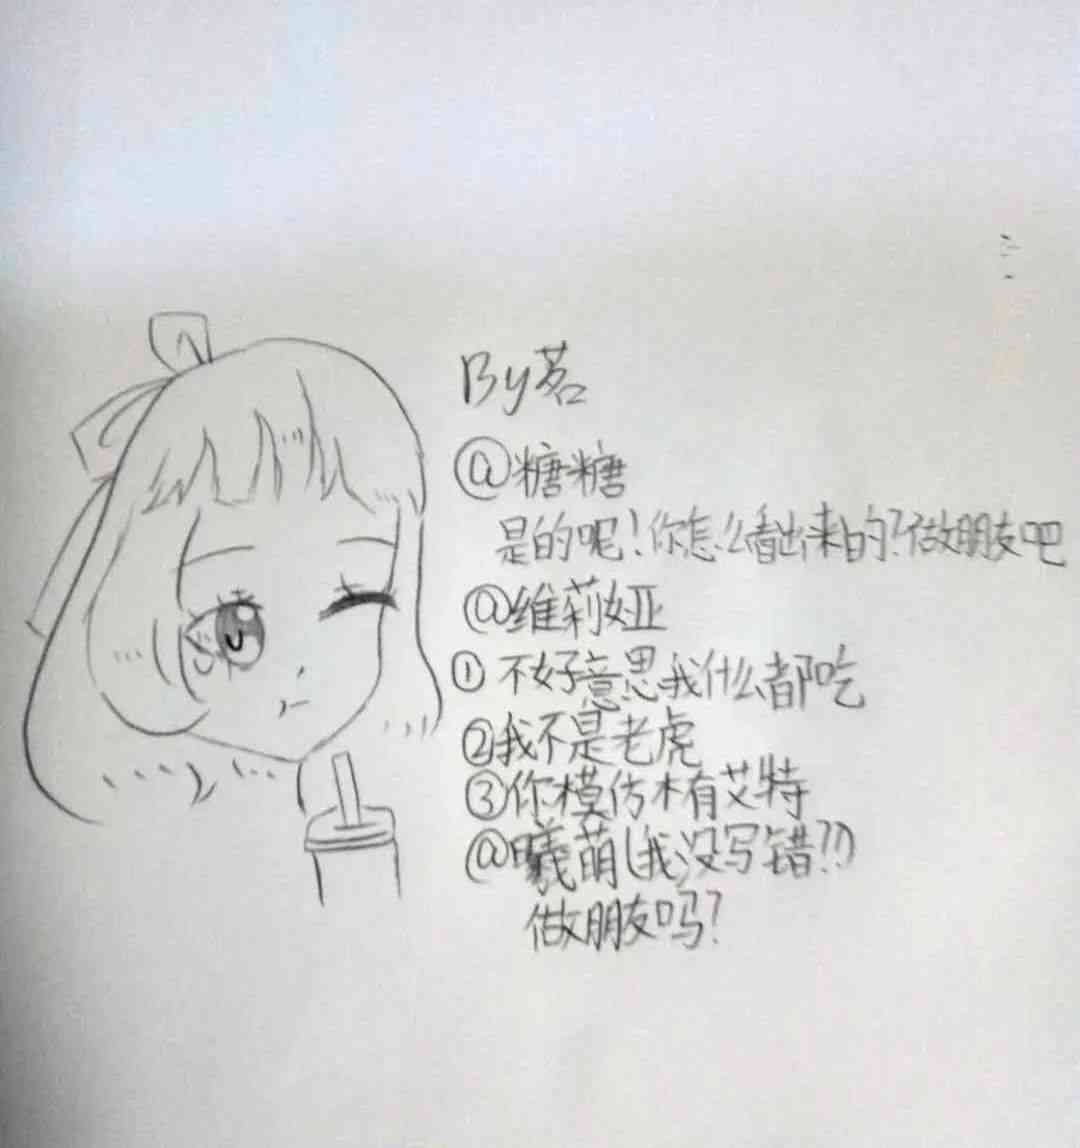 By茗
@糖糖
是的呢！你怎么看出来的？做朋友吧
@维莉娅
①不好意思我什么都吃
②我不是老虎
③你模仿木有艾特
@曦萌（我没写错？！）
做朋友吗？